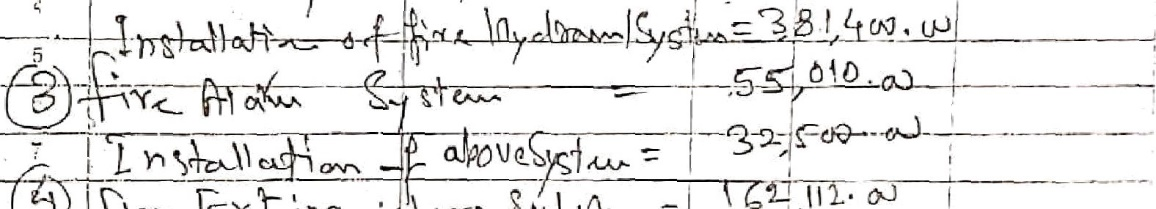 5 Installation of fire Hydram System = 381,400.00
③ fire Alarm System = 55,010.00
7 Installation of above System = 32,500.00
④ = 162,112.00